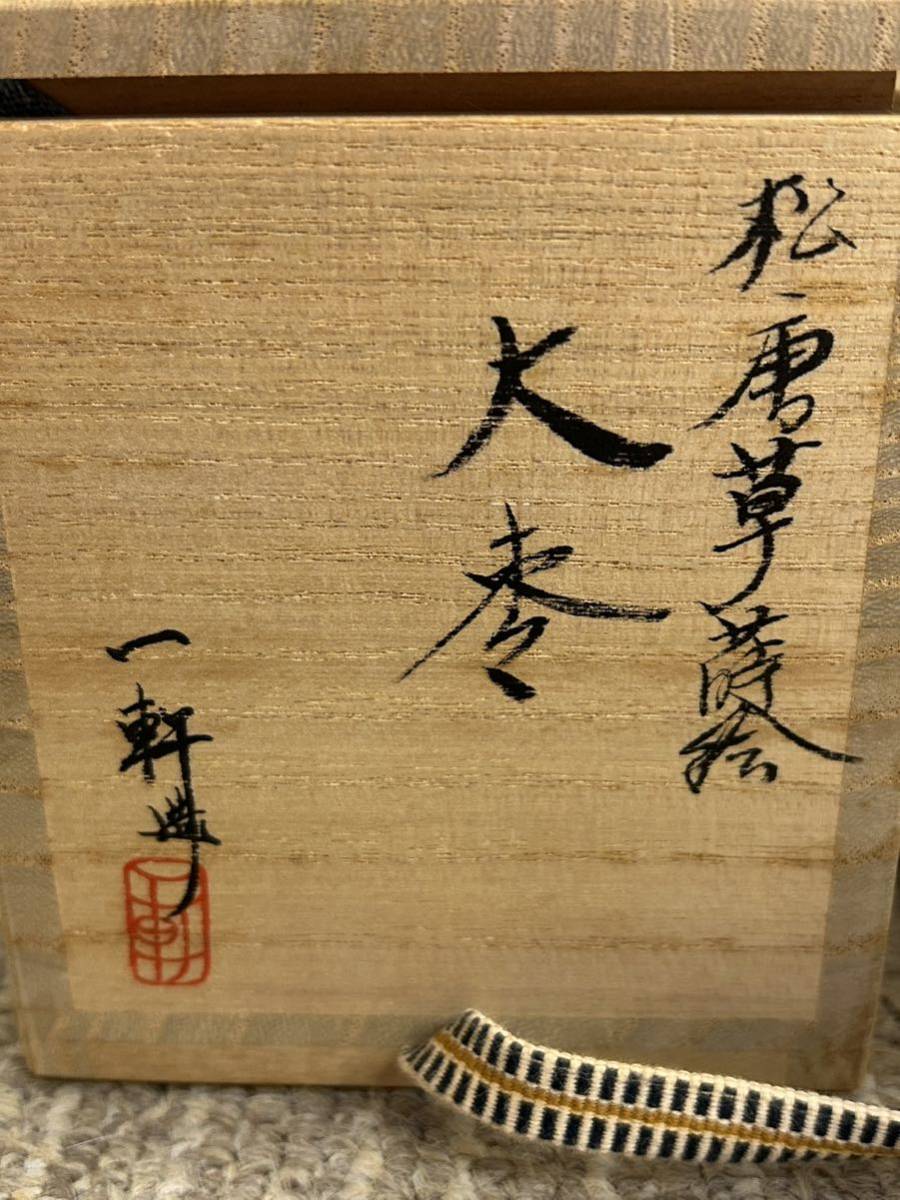 松唐草蒔絵
大棗
一軒造